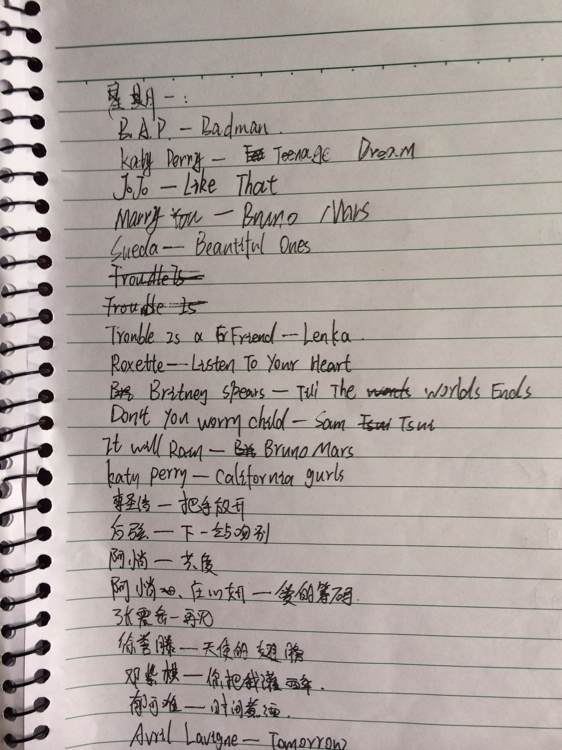 星期一:
B.A.P. — Badman.
Katy Perry — Teenage Dream
JoJo — Like That
Marry You — Bruno Mars
Sueda — Beautiful Ones
Troudle Is
Trouble Is
Trouble Is a Friend — Lenka.
Roxette — Listen To Your Heart
Britney Spears — Till The worlds Ends
Don't You worry child — Sam Tsui Tsui
It will Rain — Bruno Mars
katy perry — California gurls
李圣杰 — 把手放开
后弦 — 下一站吻别
阿悄 — 去度
阿悄 — 爱的筹码.
张震岳 — 再见
徐誉滕 — 天使的翅膀
邓紫棋 — 你把我灌醉.
郁可唯 — 时间煮雨.
Avril Lavigne — Tomorrow